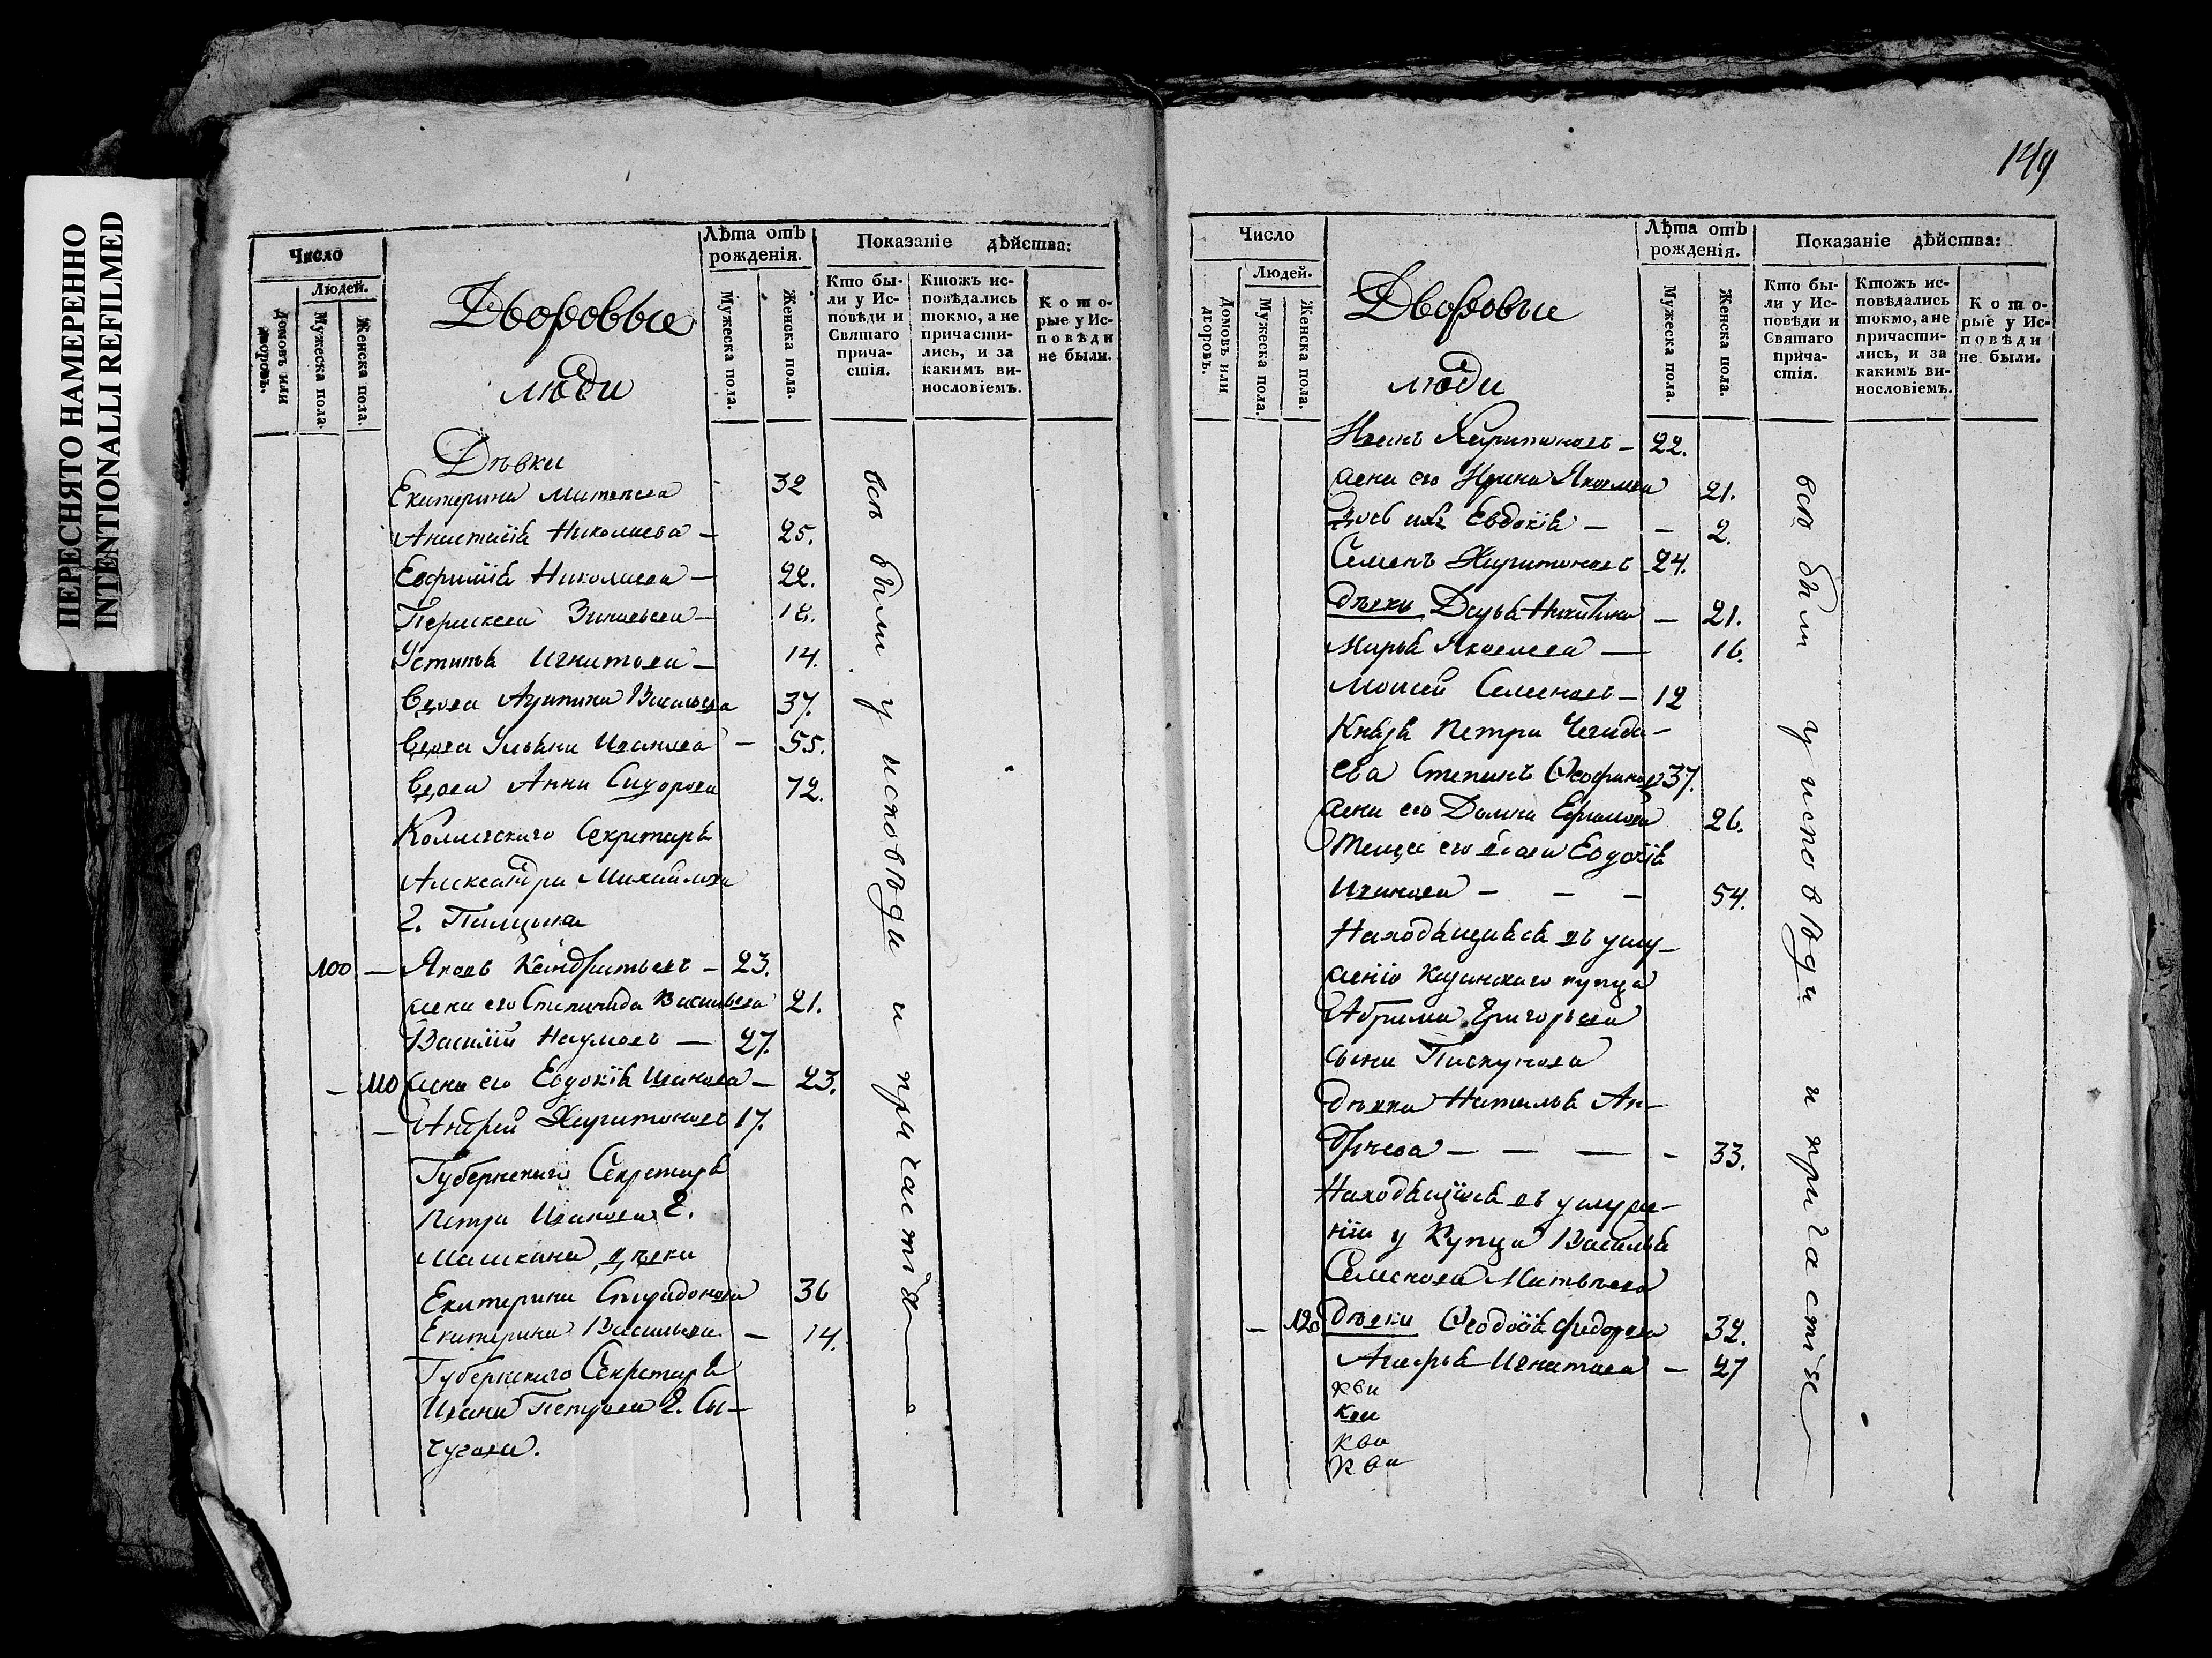 ПЕРЕСНЯТО НАМЕРЕННО
INTENTIONALLI REFILMED
Число
Людей.
Домовъ или дворовъ.
Мужеска пола.
Женска пола.
Дворовые
люди
Лѣта отъ
рожденія.
Мужеска пола.
Женска пола.
Показаніе дѣйства:
Кто бы-
ли у Ис-
повѣди и
Святаго
прича-
стія.
Ктожъ ис-
повѣдались
токмо, а не
причасти-
лись, и за
какимъ ви-
нословіемъ.
Кото-
рые у Ис-
повѣди
не были.
Дѣвки
Екатерина Матвѣева 32
Анастасія Николаева – 25.
Евфимія Николаева – 22.
Параскева Зиновьева – 18.
Устинья Игнатова – 14.
Вдова Агрипина Васильева 37.
Вдова Ульяна Иванова – 55.
Вдова Анна Сидорова 72.
Колежскаго Секретаря
Александра Михайлова
г. Палцына
100 – Яковъ Кондратьевъ – 23.
жена его Степанида Васильева 21.
Василій Наумовъ – 27.
– 110 жена его Евдокія Иванова – 23.
– Андрей Харитоновъ 17.
Губернскаго Секретаря
Петра Иванова г.
Машкина дѣвки
Екатерина Спиридонова 36
Екатерина Васильева – 14.
Губернскаго Секретаря
Ивана Петрова г. Сы-
чугова.
всѣ были у исповѣди и причастія
149
Число
Людей.
Домовъ или дворовъ.
Мужеска пола.
Женска пола.
Дворовые
люди
Лѣта отъ
рожденія.
Мужеска пола.
Женска пола.
Показаніе дѣйства:
Кто бы-
ли у Ис-
повѣди и
Святаго
прича-
стія.
Ктожъ ис-
повѣдались
токмо, а не
причасти-
лись, и за
какимъ ви-
нословіемъ.
Кото-
рые у Ис-
повѣди
не были.
Иванъ Харитоновъ – 22.
жена его Ирина Яковлева 21.
дочь ихъ Евдокія – – 2.
Семенъ Харитоновъ 24.
дѣвки Дарья Никитина – 21.
Марья Яковлева – 16.
Моисей Семеновъ – 12
Князя Петра Чегода-
ева Степанъ Ѳеофановъ 37.
жена его Домна Ефимова 26.
Теща его вдова Евдокія
Иванова – – – 54.
Находящияся въ услу-
женіи Казанскаго купца
Абрама Григорьева
сына Пискунова
дѣвка Наталья Ан-
дрѣева – – – – 33.
Находящіяся въ услуже-
ніи у Купца Василья
Семенова Матвѣева
– 120 дѣвки Ѳеодосія Федорова 32.
Агафья Игнатьева – 27
кви
кви
кви
кви
всѣ были у исповѣди и причастія